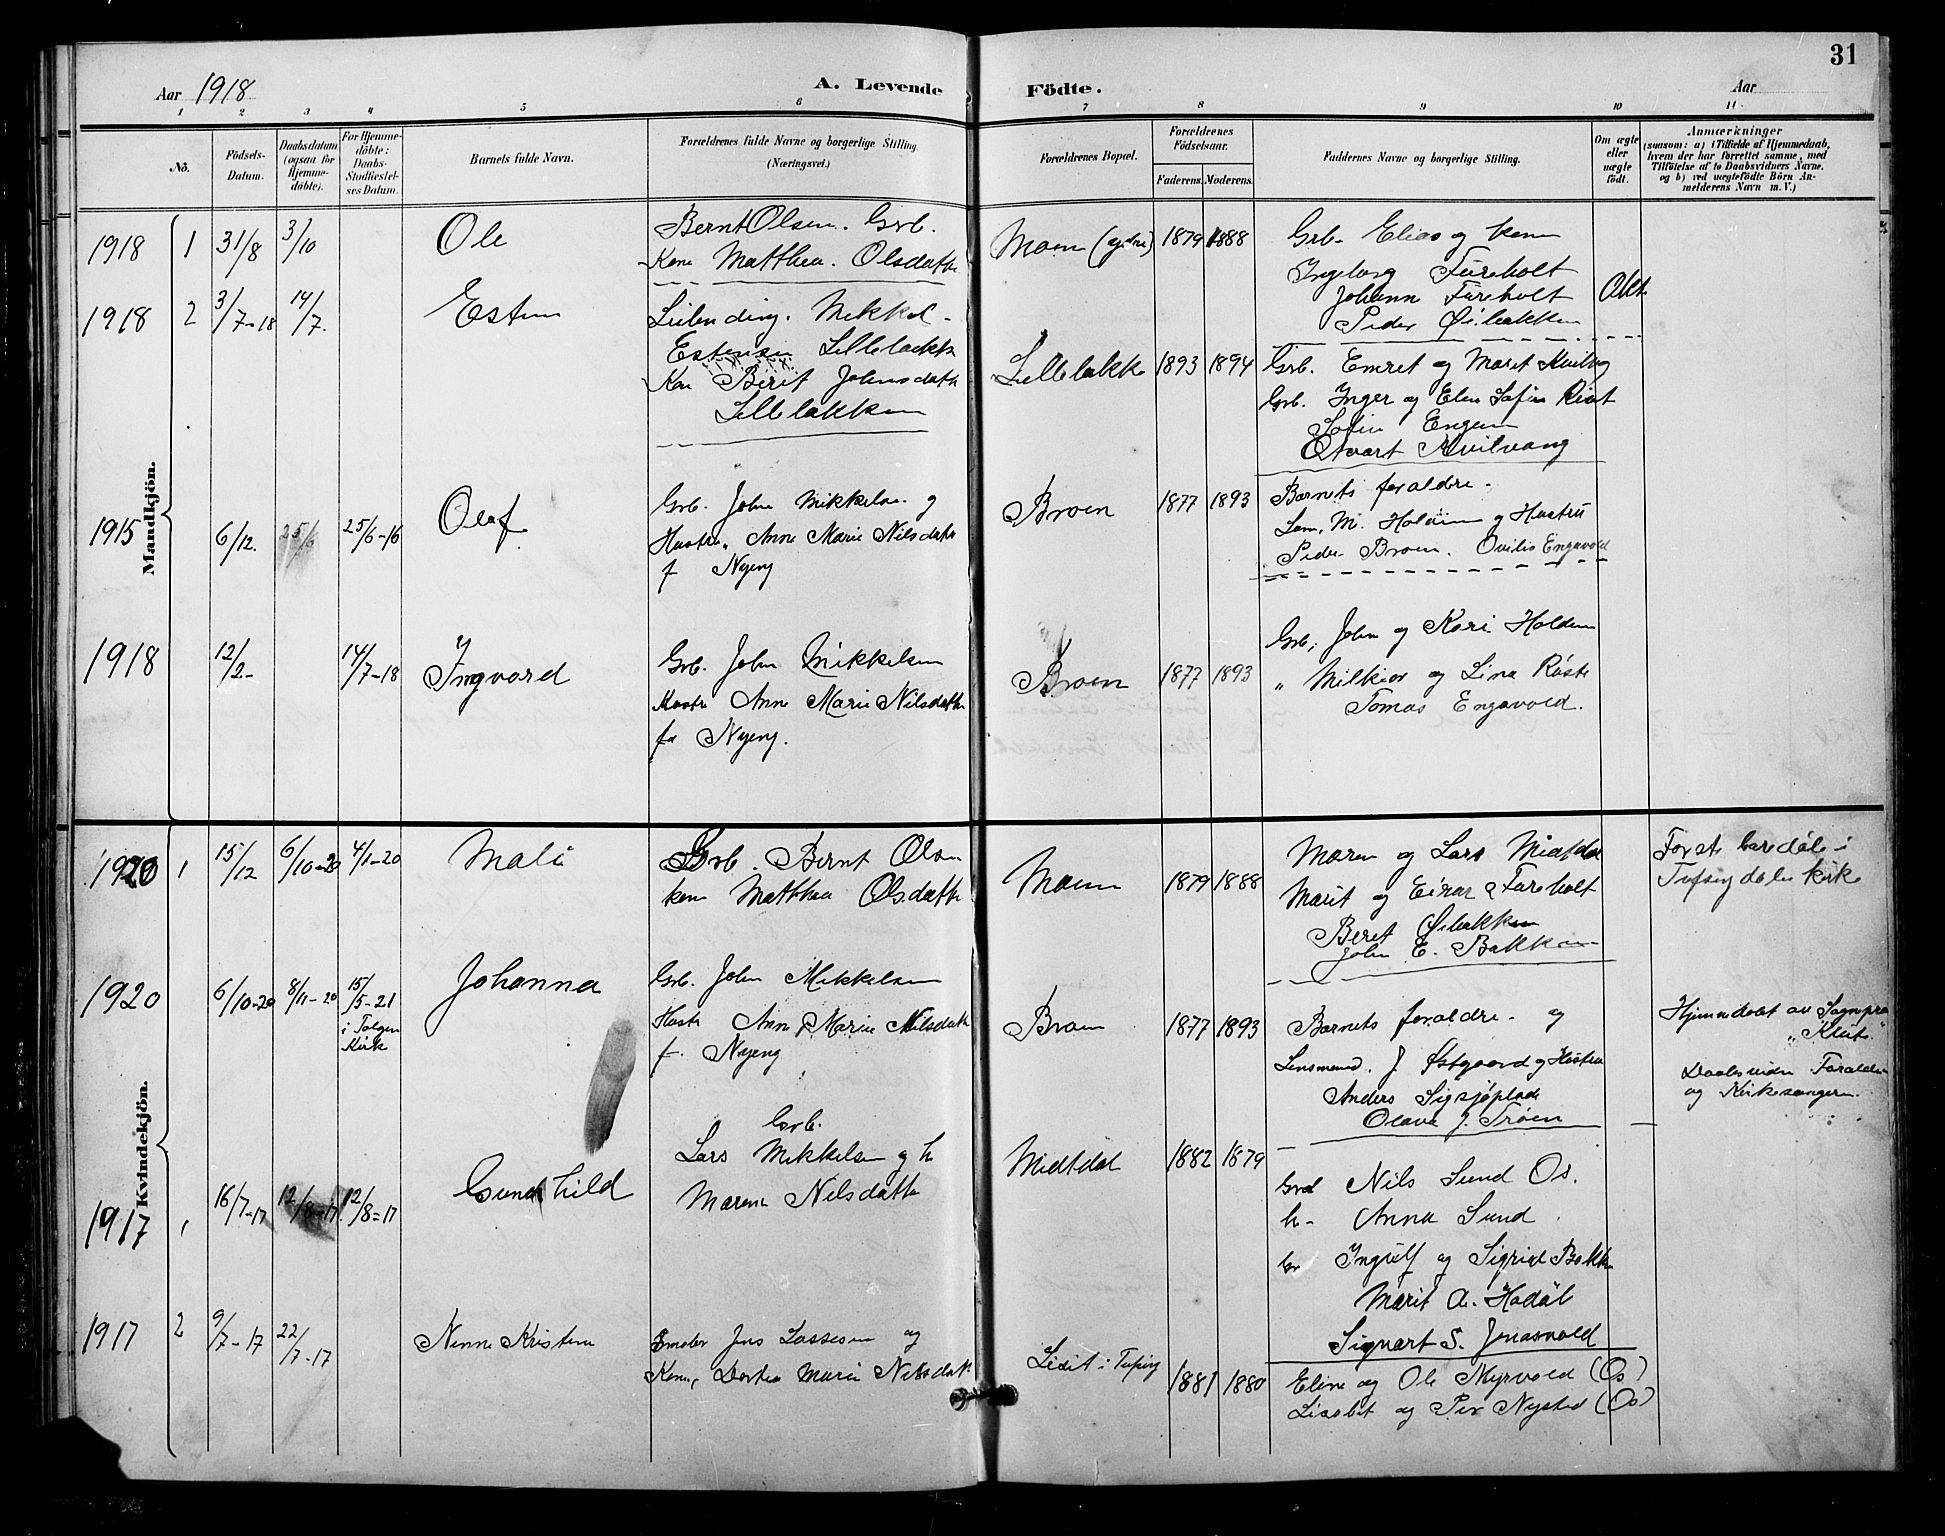 31
Aar 1918 A. Levende Födte. Aar
1 2 3 4 5 6 7 8 9 10 11
No.
Födsels-Datum.
Daabsdatum (ogsaa for Hjemme-döbte).
For Hjemme-döbte: Daabs-Stadfæstel-ses Datum.
Barnets fulde Navn.
Forældrenes fulde Navne og borgerlige Stilling (Næringsvei.)
Forældrenes Bopæl.
Forældrenes Födselsaar.
Faderens. Moderens.
Faddernes Navne og borgerlige Stilling.
Om ægte eller uægte födt.
Anmærkninger
(saasom: a) i Tilfælde af Hjemmedaab,
hvem der har forrettet samme, med
Tilföielse af to Daabsvidners Navne,
og b) ved uægtefödte Börn An-
melderens Navn m. V.)
Mandkjön.
1918 1 31/8 3/10 Ole
Bernt Olsen. Grb.
Kone Matthea. Olsdatte
Moen 1879 1888
Grb. Elias og kone
Ingeborg Fureholt
Johann Fureholt
Peder Øibakken
1918 2 3/7-18 14/7. Esten
Mikkel
Estensen Lillebakk
Kone Berit Johnsdatte
Lillebakken
Lillebakke 1893 1894
Grb. Emret og Marit Kvilvang
Grb. Inger og Elen Sofie
Sofie Engen
Kvilvang
1915 6/12. 25/6 25/6-16 Olaf
Grb. John Mikkelsen og
Hustru Anne Marie Nilsdatte
f Nyeng
Broen 1877 1893
Barnets foraldre.
M. Holden og Hustru
Peder Broen. Engavold
1918 12/2- 14/7-18 Ingvard
Grb. John Mikkelsen
Hustru Anne Marie Nilsdatte
fø Nyeng.
Broen 1877 1893
Grb, John og Kari Holden
" Milkior og Lina Røste
Tomas Engavold.
Kvindekjön.
1920 1 15/12 6/10-20 4/1-20 Mali
Grb. Bernt Olsen
kone Matthea Olsdatte
Moen 1879 1888
Maren og Lars Midtdal
Marit og Einar Fureholt
Beret Øibakken
John E. Bakken
i
Tufsingdalen kirke
1920 6/10-20 8/11-20 15/5-21
i Tolgen
Kirk
Johanna
Grb. John Mikkelsen
Hustr Anne Marie Nilsdatte
f. Nyeng
Broen 1877 1893
Barnets foraldre- og
Lensmand. J Østgaard og Hustru
Anders Sigsjøplads
Olava J. Trøen
Hjemmedøbt av Sognepr
"Klüt"
Daabsvidn Foraldre
og Kirkesangeren.
1917 1 16/7-17 12/8-17 12/8-17 Gunhild
Grb.
Lars Mikkelsen og h
Maren Nilsdatte
Midtdal 1882 1879
Nils Sund Os.
h- Anna Sund
Gr Ingulf og Sigrid Bakken
Marit A. Hodøl
Signart S. Jonasvold
1917 2 9/7-17 22/7-17 Ninne Kristine
Jens Lassesen og
Kone, Dortea Marie Nilsdat
1881 1880
Eline og Ole Myrvold (Os)
Lisabet og Per Nysted (Os)